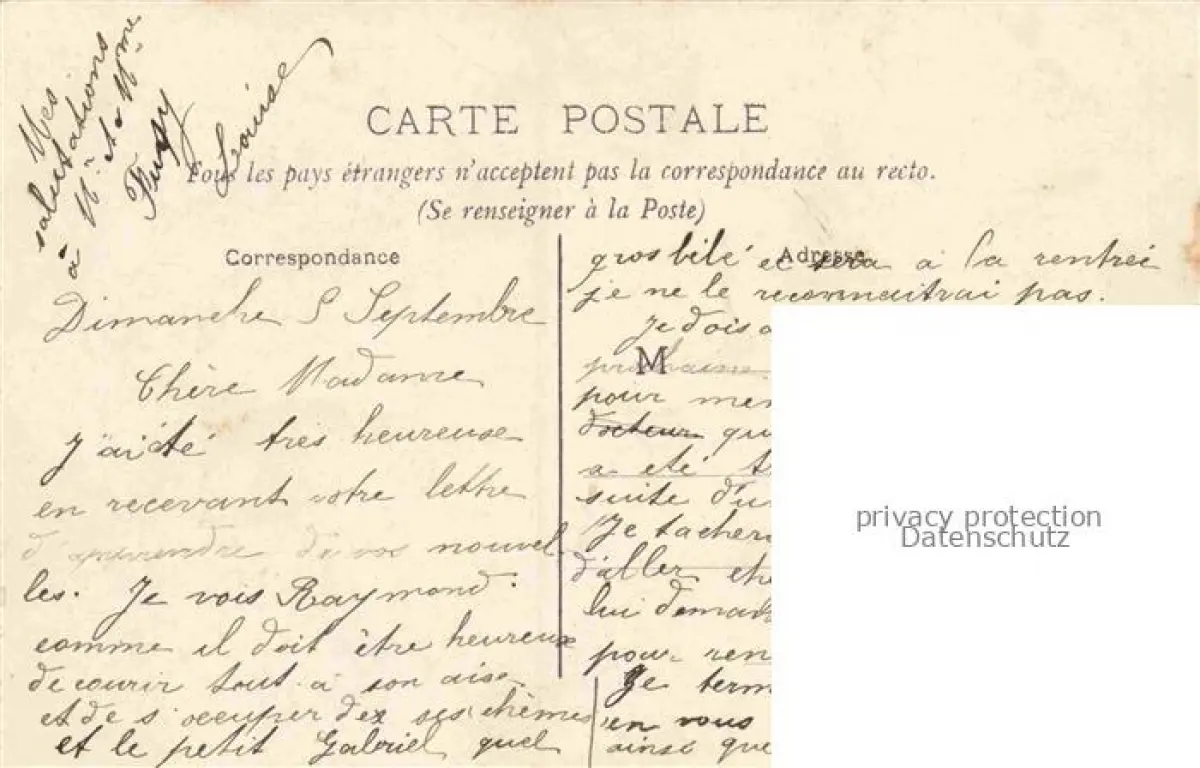 Mes
salutations
à Mr et Mme
Louise
CARTE POSTALE
Tous les pays étrangers n'acceptent pas la correspondance au recto.
(Se renseigner à la Poste)
Correspondance
Dimanche 5 Septembre
Chère Madame
J'ai été très heureuse
en recevant votre lettre
d'apprendre de vos nouvel
les. Je vois Raymond
comme il doit être heureux
de courir tout à son aise
et de s'occuper de ses
et le petit Gabriel quel
Adresse
gros bébé ce sera à la rentrée
je ne le reconnaitrai pas.
Je dois
M
prochaine
pour
docteur
a eté
suite d'u
Je tacherai
d'aller
lui deman
pour ren
Je term
en vous
ainsi que
privacy protection
Datenschutz